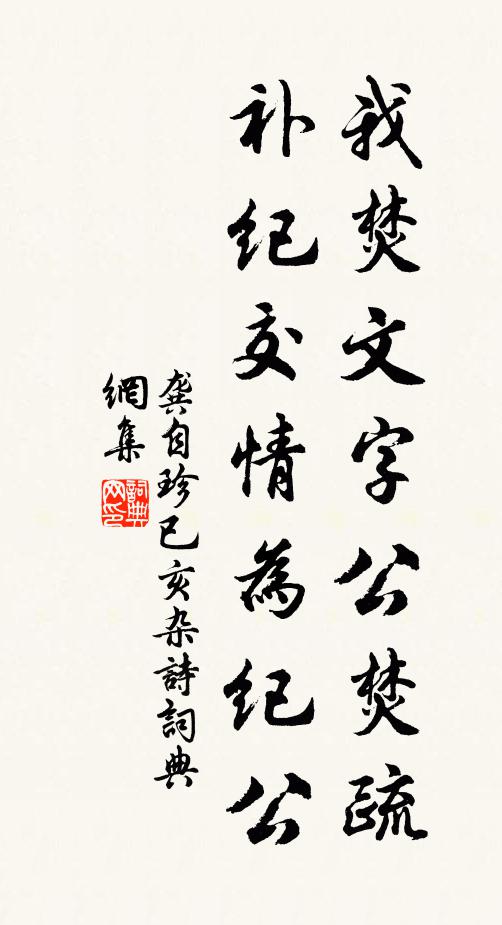 我焚文字公焚疏
补纪交情為纪公
龔自珍已亥杂詩詞典
網集
詞典
网印